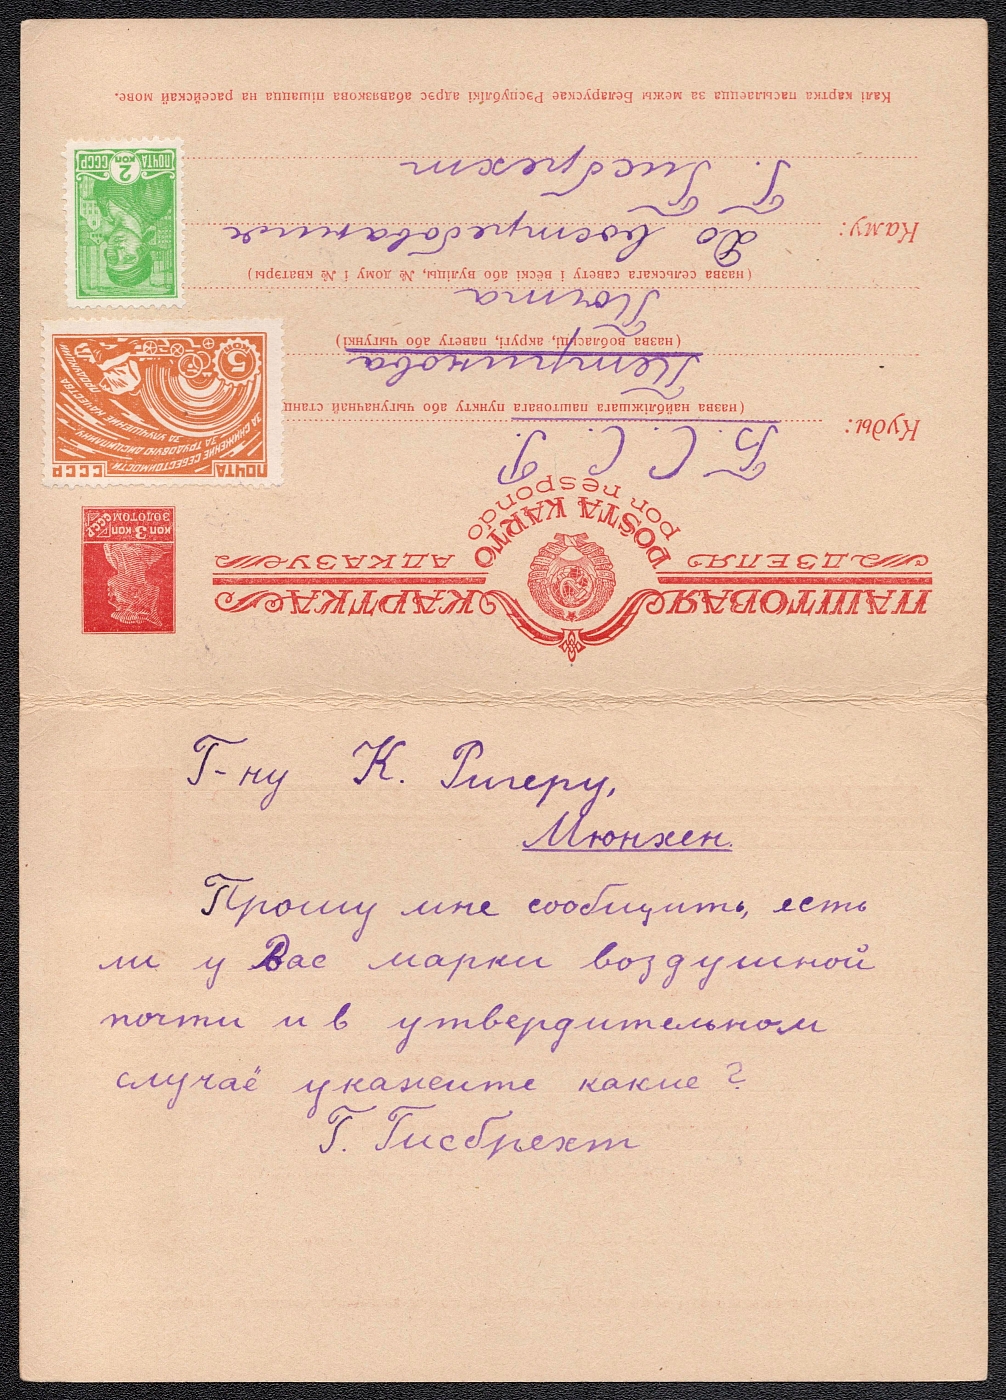 ПАШТОВАЯ КАРТКА
ДЗЕЛЯ АДКАЗУ
POŜTA KARTO
por respondo
КОП 3 КОП
ЗОЛОТОМ СССР
Куды:
Б. С. С. Р.
(назва найбліжшага паштовага пункту або чыгуначнай стан
Петрикова
(назва вобласьці, акругі, павету або чыгункі)
Почта
(назва сельскага савету і вёскі або вуліцы, № дому і № кватэры)
Каму:
До востребования
Г. Гисбрехт
Калі картка пасылаецца за межы Беларускае Рэспублікі адрэс абавязкова пішацца на расейскай мове.
ПОЧТА СССР
ЗА СНИЖЕНИЕ СЕБЕСТОИМОСТИ,
ЗА ТРУДОВУЮ ДИСЦИПЛИНУ,
ЗА УЛУЧШЕНИЕ КАЧЕСТВА
ПРОДУКЦИИ
5
ПОЧТА 2 КОП СССР
Г-ну К. Ригеру,
Мюнхен.
Прошу мне сообщить, есть
ли у Вас марки воздушной
почти и в утвердительном
случаё укажите какие?
Г. Гисбрехт